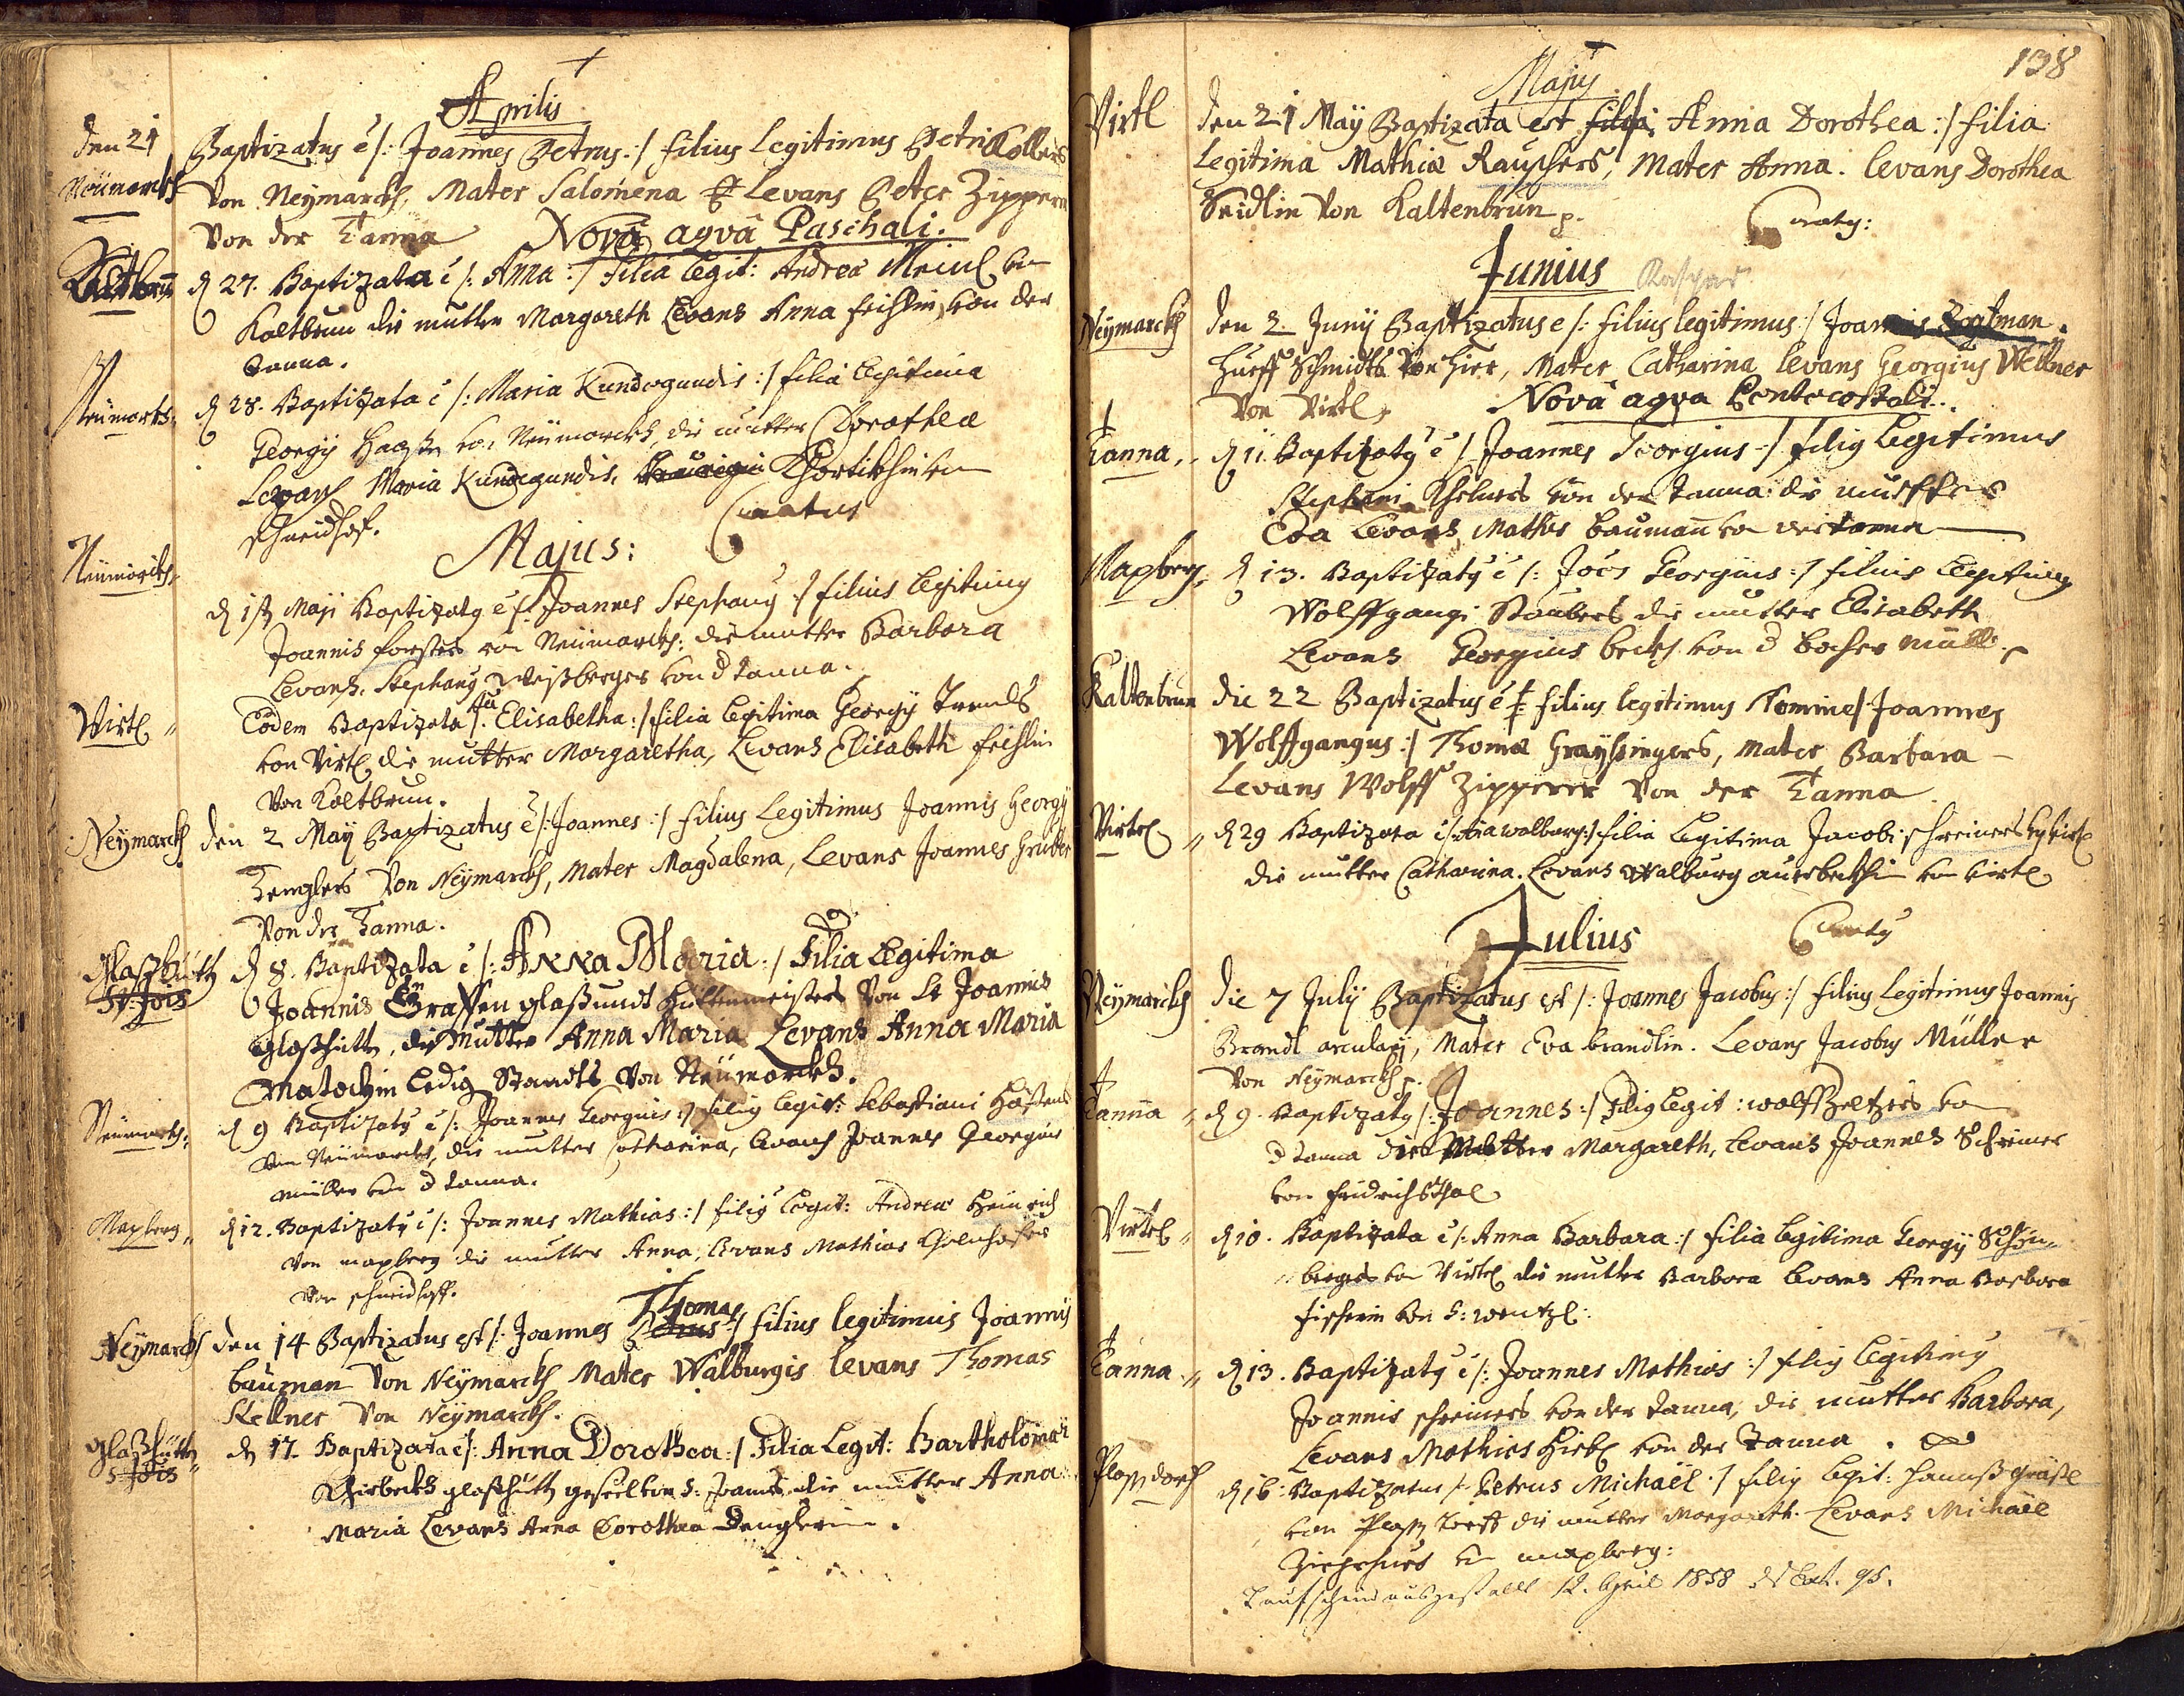 Aprilis
den 21 Baptizatus e /: Joannes Petrus :/ filius Legitimus Petri Kollers
Neümarckh Von Neymarckh, Mater Salomena Levans Peter Zipperer
Von der Tanna Nova aqva Paschali.
Kaltbrun d 27. Baptizata e /: Anna :/ filia Legit: Andreæ Meinl von
Kaltbrun die mutter Margareth Levans Anna feihlin von der
tanna.
Neümarckh. d 28. Baptizata e /: Maria Kundegundis :/ filia Legitima
Georgij von Neümarckh, die mutter Dorothea
Levans Maria Kundegundis,
schneidhof. Curatus
Majus:
Neümarckh d 1st Maji Baptizaty e /: Joannes Stephany :/ filius Legitimy
Joannis forsters von Neümarckh: die mutter Barbara
Levans. Stephany Weißberger von d tanna.
Virtl Eodem Baptizata /: Elisabetha :/ filia Legitima Georgij Trends
von Virtl die mutter Margaretha, Levans Elisabeth feihlin
Von Kaltbrun.
Neymarckh den 2 May Baptizatus e /: Joannes :/ filius Legitimus Joannis Georgij
Tenglers Von Neymarckh, Mater Magdalena, Levans Joannes Gruber
Von der Tanna.
Glaßhütt d 8. Baptizata e /: Anna Maria :/ Filia Legitima
St: Jois Joannis Graffen glaß undt hüttenmeisters Von St Joannis
glaßhütt, die Mutter Anna Maria Levans Anna Maria
Matochin Ledig Standts Von Neümarckh.
Neümarckh: d 9 Baptizaty e /: Joannes Georgius :/ filiy Legit: Sebastiani
Von Neümarckh, die mutter Catharina, Levans Joannes Georgius
müller von d tanna.
Maxberg d 12. Baptizaty e /: Joannes Mathias :/ filiy Legit: Andreæ Heinrich
Von maxberg die mutter Anna, Levans Mathias
Von schneidhoff.
Neymarckh den 14 Baptizatus est /: Joannes Thomas Petrus :/ filius legitimus Joannis
bauman Von Neymarckh Mater Walburgis levans Thomas
Kellner Von Neymarckh.
glaßhütt d 17. Baptizata e /: Anna Dorothea :/ Filia Legit: Bartholomæi
S Jois glaßhütt geseel von S: Joannis die mutter Anna
Maria Levans Anna Dorothea Denglerin.
138
Majy
Virtl den 21 May Baptizata est filia Anna Dorothea :/ filia
Legitima Mathiæ Rauschers, Mater Anna. levans Dorothea
Seidlin Von Kaltenbrun p. Curaty:
Junius Kaspar
Neymarckh den 2 Junij Baptizatus e /: filius legitimus :/ Joannis
hueff Schmidts Von hier, Mater Catharina levans Georgius Wellner
Von Virtl. Nova aqva Pentecostali.
Tanna d 11 Baptizaty e / Joannes Georgius :/ filiy Legitimus
Stephani von der tanna die mutter
Eva Levans, Mathes Bauman von der tanna
Maxberg d 13. Baptizaty e /: Joes Georgius :/ filius Legitimy
Wolffgangi Staubers die mutter Elisabeth
Levans Georgius beckh von d müll.
Kaltenbrun die 22 Baptizatus e /: filius legitimus Nomine / Joannes
Wolffgangus :/ Thomæ Grayssingers, Mater Barbara
Levans Wolff Zipperer Von der Tanna
Virtl d 29 Baptizata e /: Aa walburg :/ filia Legitima Jacobi schreiners
die mutter Catharina. Levans Walburg auerbeckhin von virtl
Julius Curaty
Neymarckh die 7 July Baptizatus est /: Joannes Jacoby :/ filius Legitimus Joannis
Brandl arcularij, Mater Eva brandlin. Levans Jacoby Müller
Von Neymarckh p.
Tanna d 9. Baptizaty /: Joannes :/ Filiy Legit: wolff Zeltzers von
d tanna die Mutter Margareth, Levans Joannes Schreiner
von fridrichsthal
Virtl d 10. Baptizata e /: Anna Barbara :/ filia Legitima Georgij Schön-
bergers von Virtl die mutter Barbara Levans Anna Barbara
fischerin von S: wentzl:
Tanna d 13. Baptizaty e /: Joannes Mathias :/ filiy Legitimy
Joannis schreiners von der tanna, die mutter Barbara,
Levans Mathias Hirtl von der Tanna.
Plaßdorf d 16: Baptizatus /: Petrus Michaël :/ filiy Legit: hannß gräßl
von Plaß Dorff die mutter Margareth. Levans Michaël
von maxberg:
Taufschein ausgestellt 12. April 1858